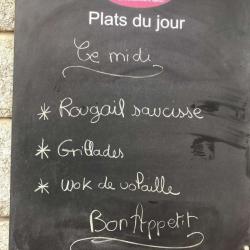 Plats du jour
Ce midi
* Rougail saucisse
* Grillades
* Wok de volaille
Bon Appetit